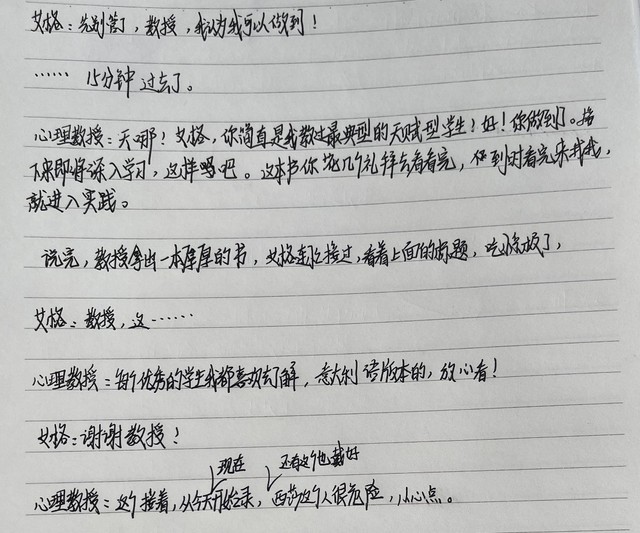 艾格：先别管了，教授，我认为我可以做到！
…… 15分钟过去了。
心理教授：天哪！艾格，你简直是我教过最典型的天赋型学生！好！你做到了。接
下来即将深入学习，这样吧。这本书你花几个礼拜去看看完，你到时看完来找我，
就进入实践。
说完，教授拿出一本厚厚的书，艾格连忙接过，看着上面的标题，吃了，
艾格：教授，这……
心理教授：每个优秀的学生我都喜欢去了解，意大利语版本的，放心看！
艾格：谢谢教授！
现在 还有这个也戴好
心理教授：这个接着，从今天开始录，西莎这个人很危险，小心点。